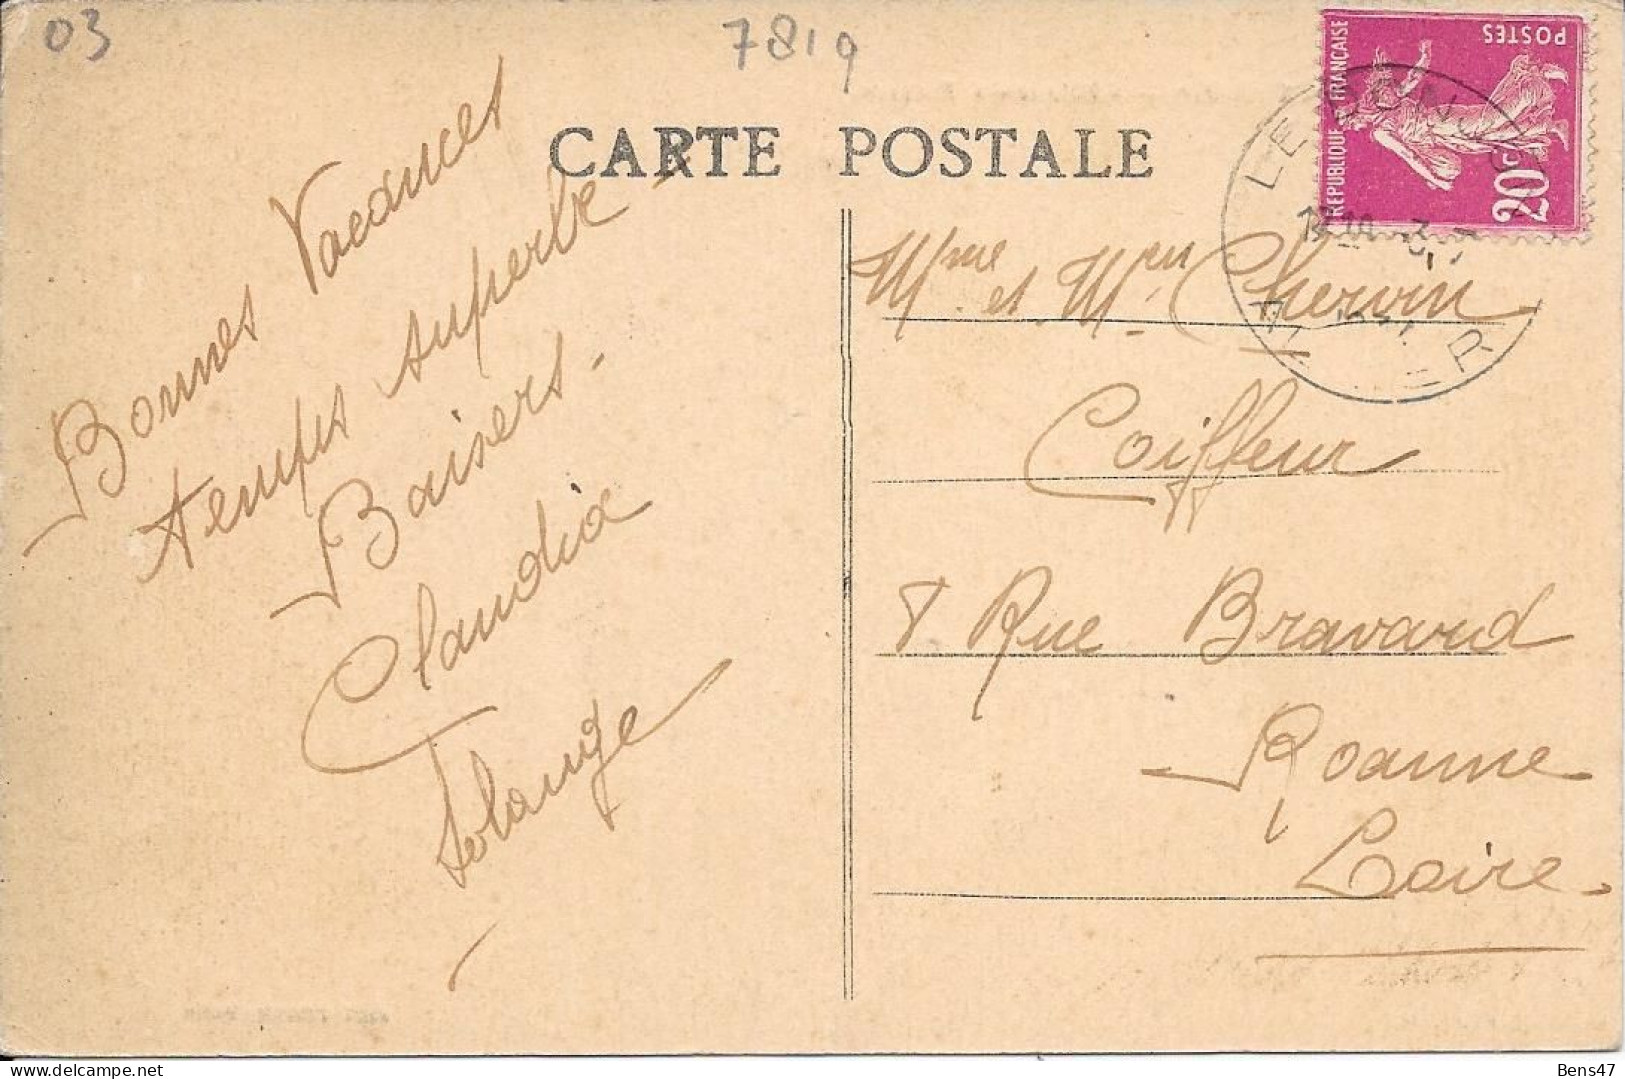 03
7819
CARTE POSTALE
RÉPUBLIQUE FRANÇAISE
POSTES
20c
LE DONJON
ALLIER
Bonnes Vacances
temps superbe -
Baisers -
Claudia
Solange
Mme et Mr Chervin
Coiffeur
8 Rue Bravard
Roanne
Loire.
Bens47